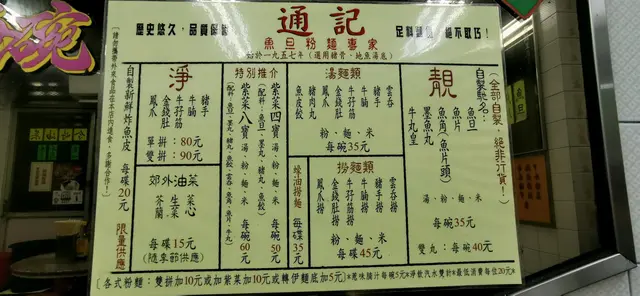 通記
魚旦粉麵專家
始於一九五七年(選用豬骨、地魚湯底)
歷史悠久、品質保證
足料靚湯、絕不取巧!
(全部自製,絕非行貨!)
自製馳名:
靚
魚旦
魚片
魚角(魚片頭)
墨魚丸
牛丸皇
湯.粉.麵.米
每碗35元
雙丸:每碗40元
湯麵類
雲吞
豬手
牛腩
牛孖筋
金錢肚
鳳爪
豬肉丸
魚皮餃
粉、麵、米
每碗35元
撈麵類
雲吞撈
豬手撈
牛腩撈
牛孖筋撈
金錢肚撈
鳳爪撈
粉、麵、米
每碟45元
蠔油撈麵
每碟35元
特別推介
紫菜四寶湯.粉.麵.米
(配料:魚旦、墨丸、豬丸、魚餃)
每碗50元
紫菜八寶湯.粉.麵.米
每碗60元
淨
豬手
牛腩
牛孖筋
金錢肚
鳳爪
單拼:80元
雙拼:90元
郊外油菜
菜心
生菜
芥蘭
每碟15元
(隨季節供應)
自製新鮮炸魚皮 每碟20元
限量供應
(請勿攜帶外來食品在本店內進食,多謝合作!)
[各式粉麵:雙拼加10元或加紫菜加10元或轉伊麵底加5元]*原味撈汁每碗5元*淨飲汽水雙計*最低消費每位20元*